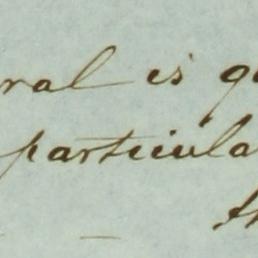 ral is g
particula
th